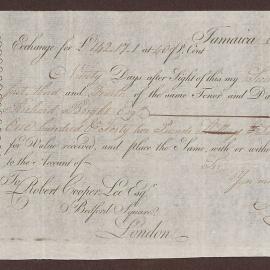 Jamaica
Exchange for £142.17.1 at 40 ₱ Cent
Ninety Days after Sight of this my
and Fourth of the same Tenor and Da
Richard Bright Esqr
One hundred & Forty two Pounds
for Value received, and place the Same, with or witho
to the Account of
To Robert Cooper Lee Esqr
Bedford Square
London